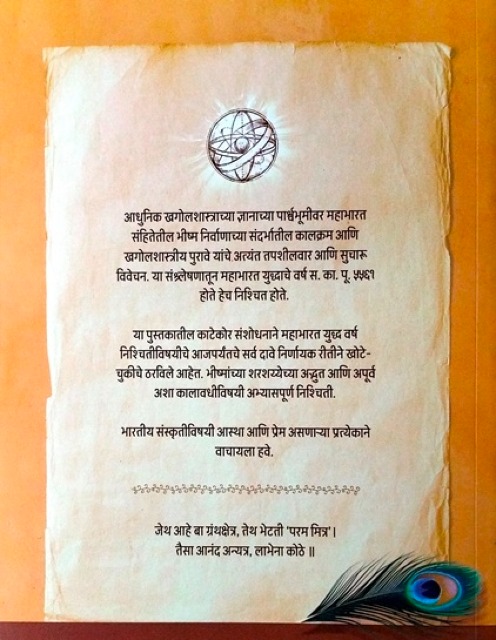 आधुनिक खगोलशास्त्राच्या ज्ञानाच्या पार्श्वभूमीवर महाभारत
संहितेतील भीष्म निर्वाणाच्या संदर्भातील कालक्रम आणि
खगोलशास्त्रीय पुरावे यांचे अत्यंत तपशीलवार आणि सुचारू
विवेचन. या संश्लेषणातून महाभारत युद्धाचे वर्ष स. का. पू. ५५६१
होते हेच निश्चित होते.
या पुस्तकातील काटेकोर संशोधनाने महाभारत युद्ध वर्ष
निश्चितीविषयीचे आजपर्यंतचे सर्व दावे निर्णायक रीतीने खोटे-
चुकीचे ठरविले आहेत. भीष्मांच्या शरशय्येच्या अद्भुत आणि अपूर्व
अशा कालावधीविषयी अभ्यासपूर्ण निश्चिती.
भारतीय संस्कृतीविषयी आस्था आणि प्रेम असणाऱ्या प्रत्येकाने
वाचायला हवे.
जेथ आहे बा ग्रंथक्षेत्र, तेथ भेटती 'परम मित्र'।
तैसा आनंद अन्यत्र, लाभेना कोठे ॥